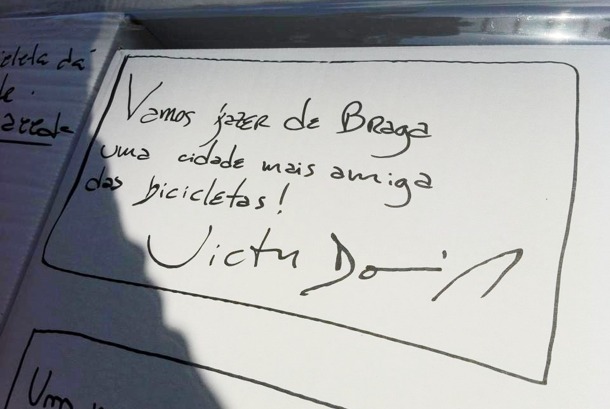 icleta dá
de.
Vamos fazer de Braga
uma cidade mais amiga
das bicicletas!
Victor
Um